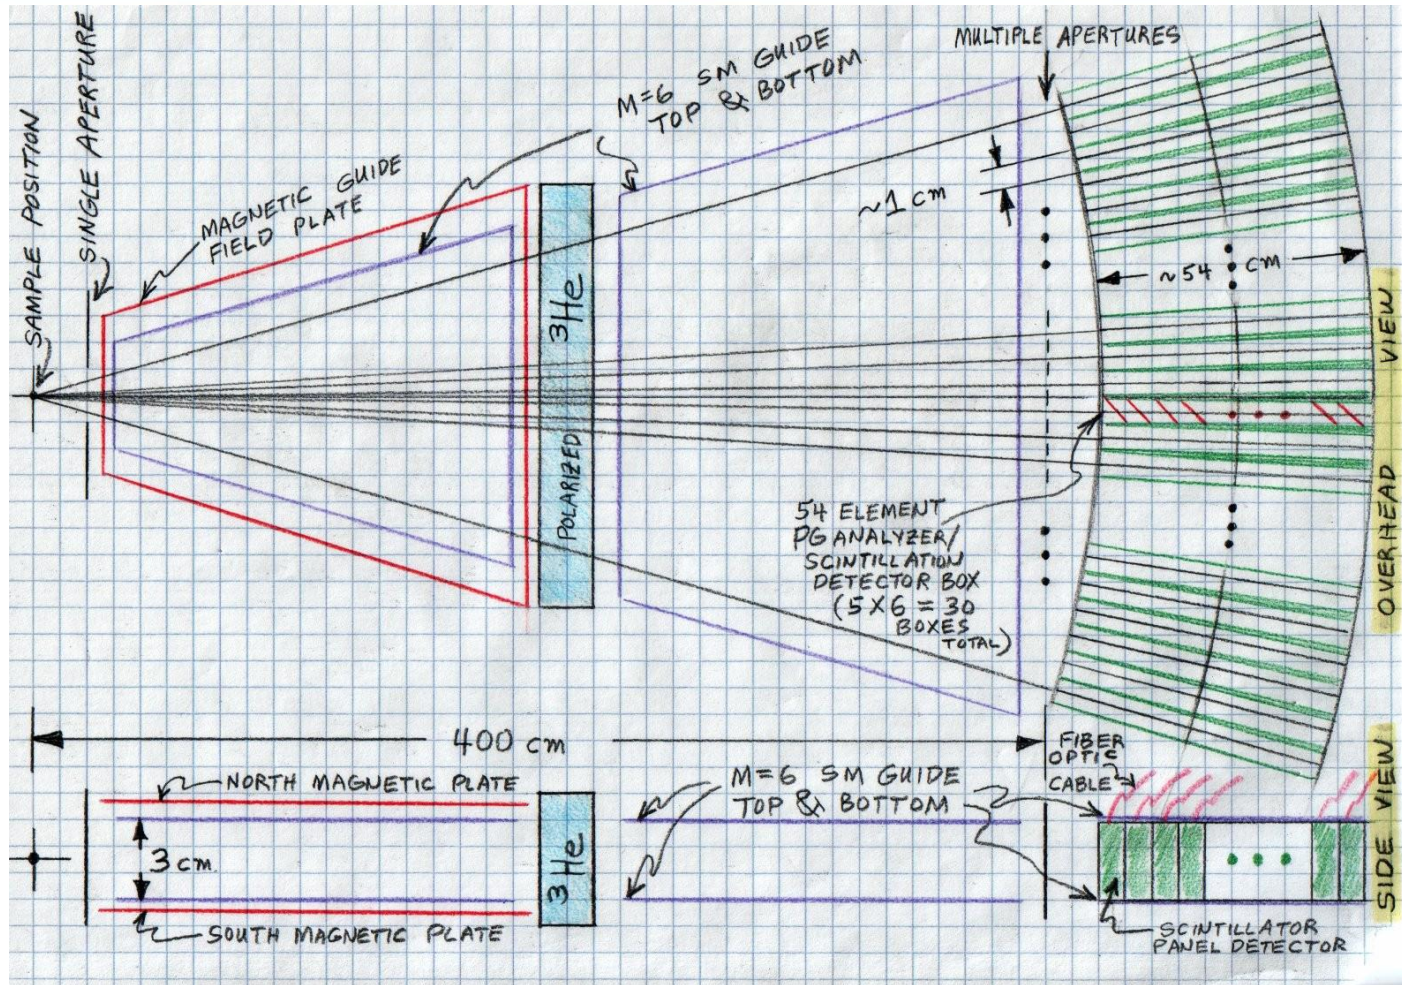 SAMPLE POSITION
SINGLE APERTURE
MAGNETIC GUIDE
FIELD PLATE
M=6 SM GUIDE
TOP & BOTTOM
MULTIPLE APERTURES
3He
POLARIZED
~1 cm
~54 cm
54 ELEMENT
PG ANALYZER/
SCINTILLATION
DETECTOR BOX
(5X6=30
BOXES
TOTAL)
OVERHEAD VIEW
400 cm
NORTH MAGNETIC PLATE
3 cm
SOUTH MAGNETIC PLATE
3He
M=6 SM GUIDE
TOP & BOTTOM
FIBER
OPTIC
CABLE
SCINTILLATOR
PANEL DETECTOR
SIDE VIEW